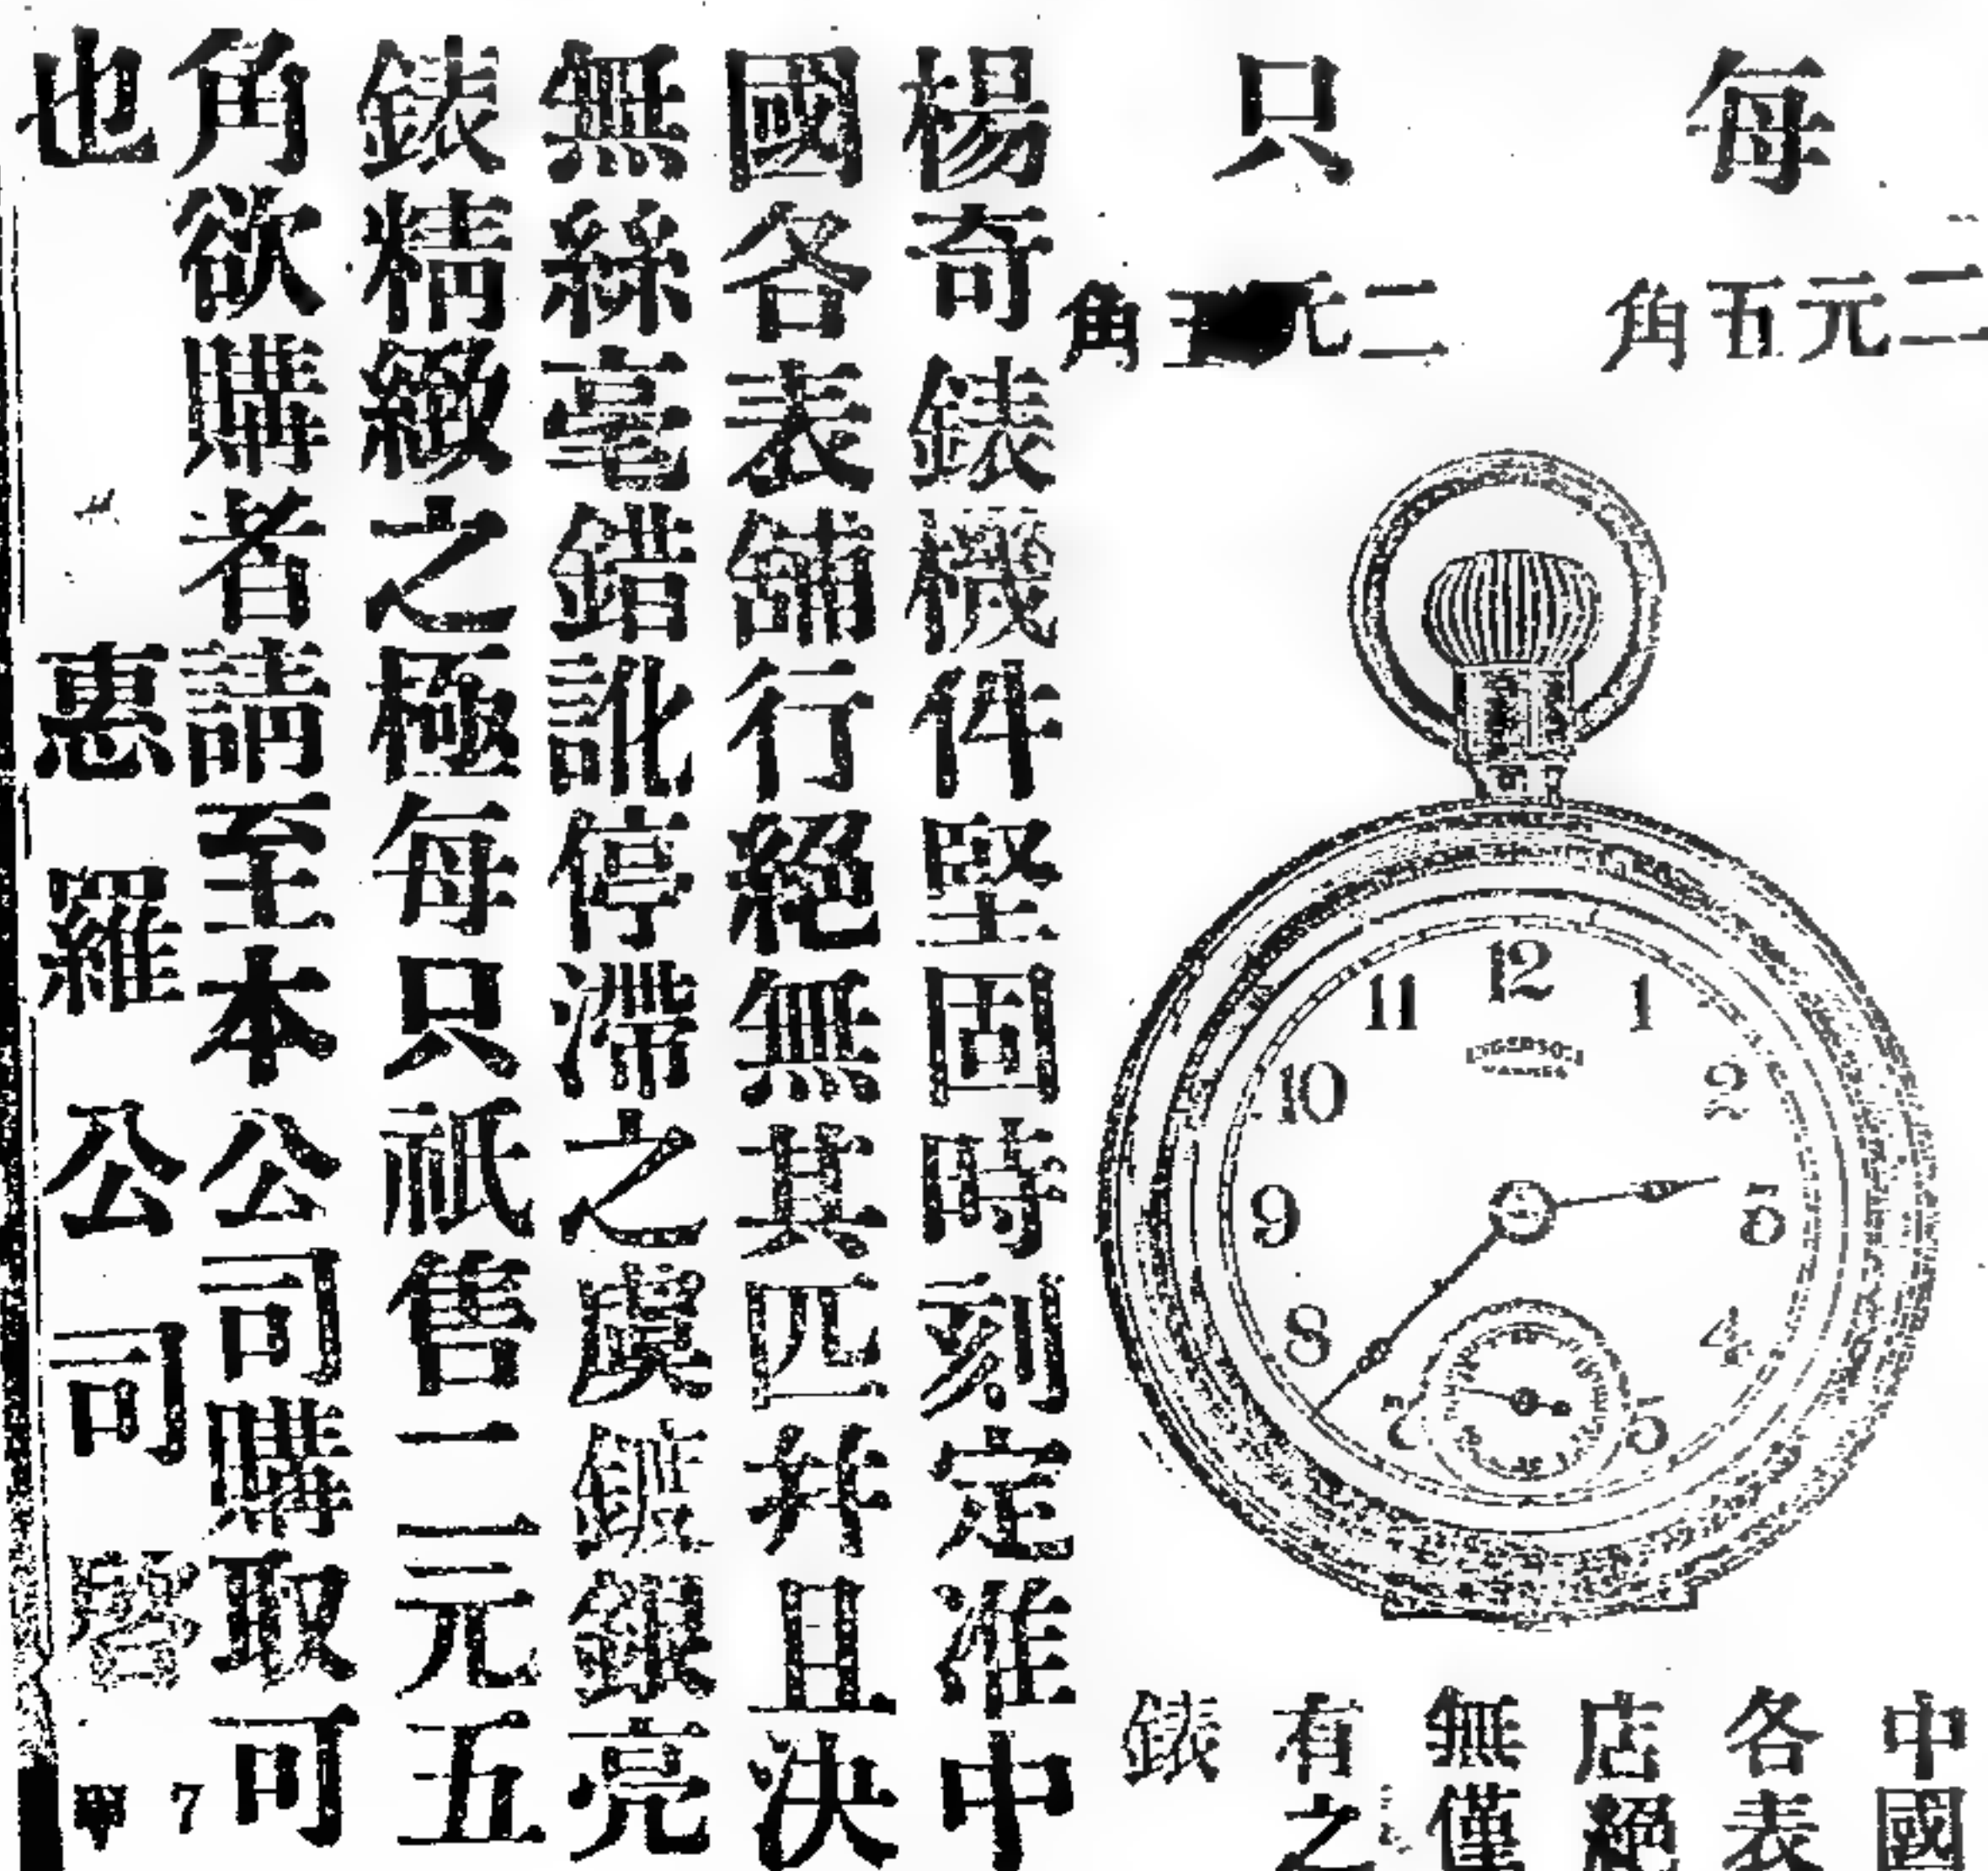 每只
二元五角
二元五角
12
1
2
3
4
5
7
8
9
10
11
中國
各表
店絕
無僅
有之
錶
楊奇錶機件堅固時刻定准中
國各表舖行絕無其匹并且決
無絲毫錯訛停滯之虞鍍銀亮
錶精緻之極每只祇售二元五
角欲購者請至本公司購取可
也 惠羅公司啓
甲 7